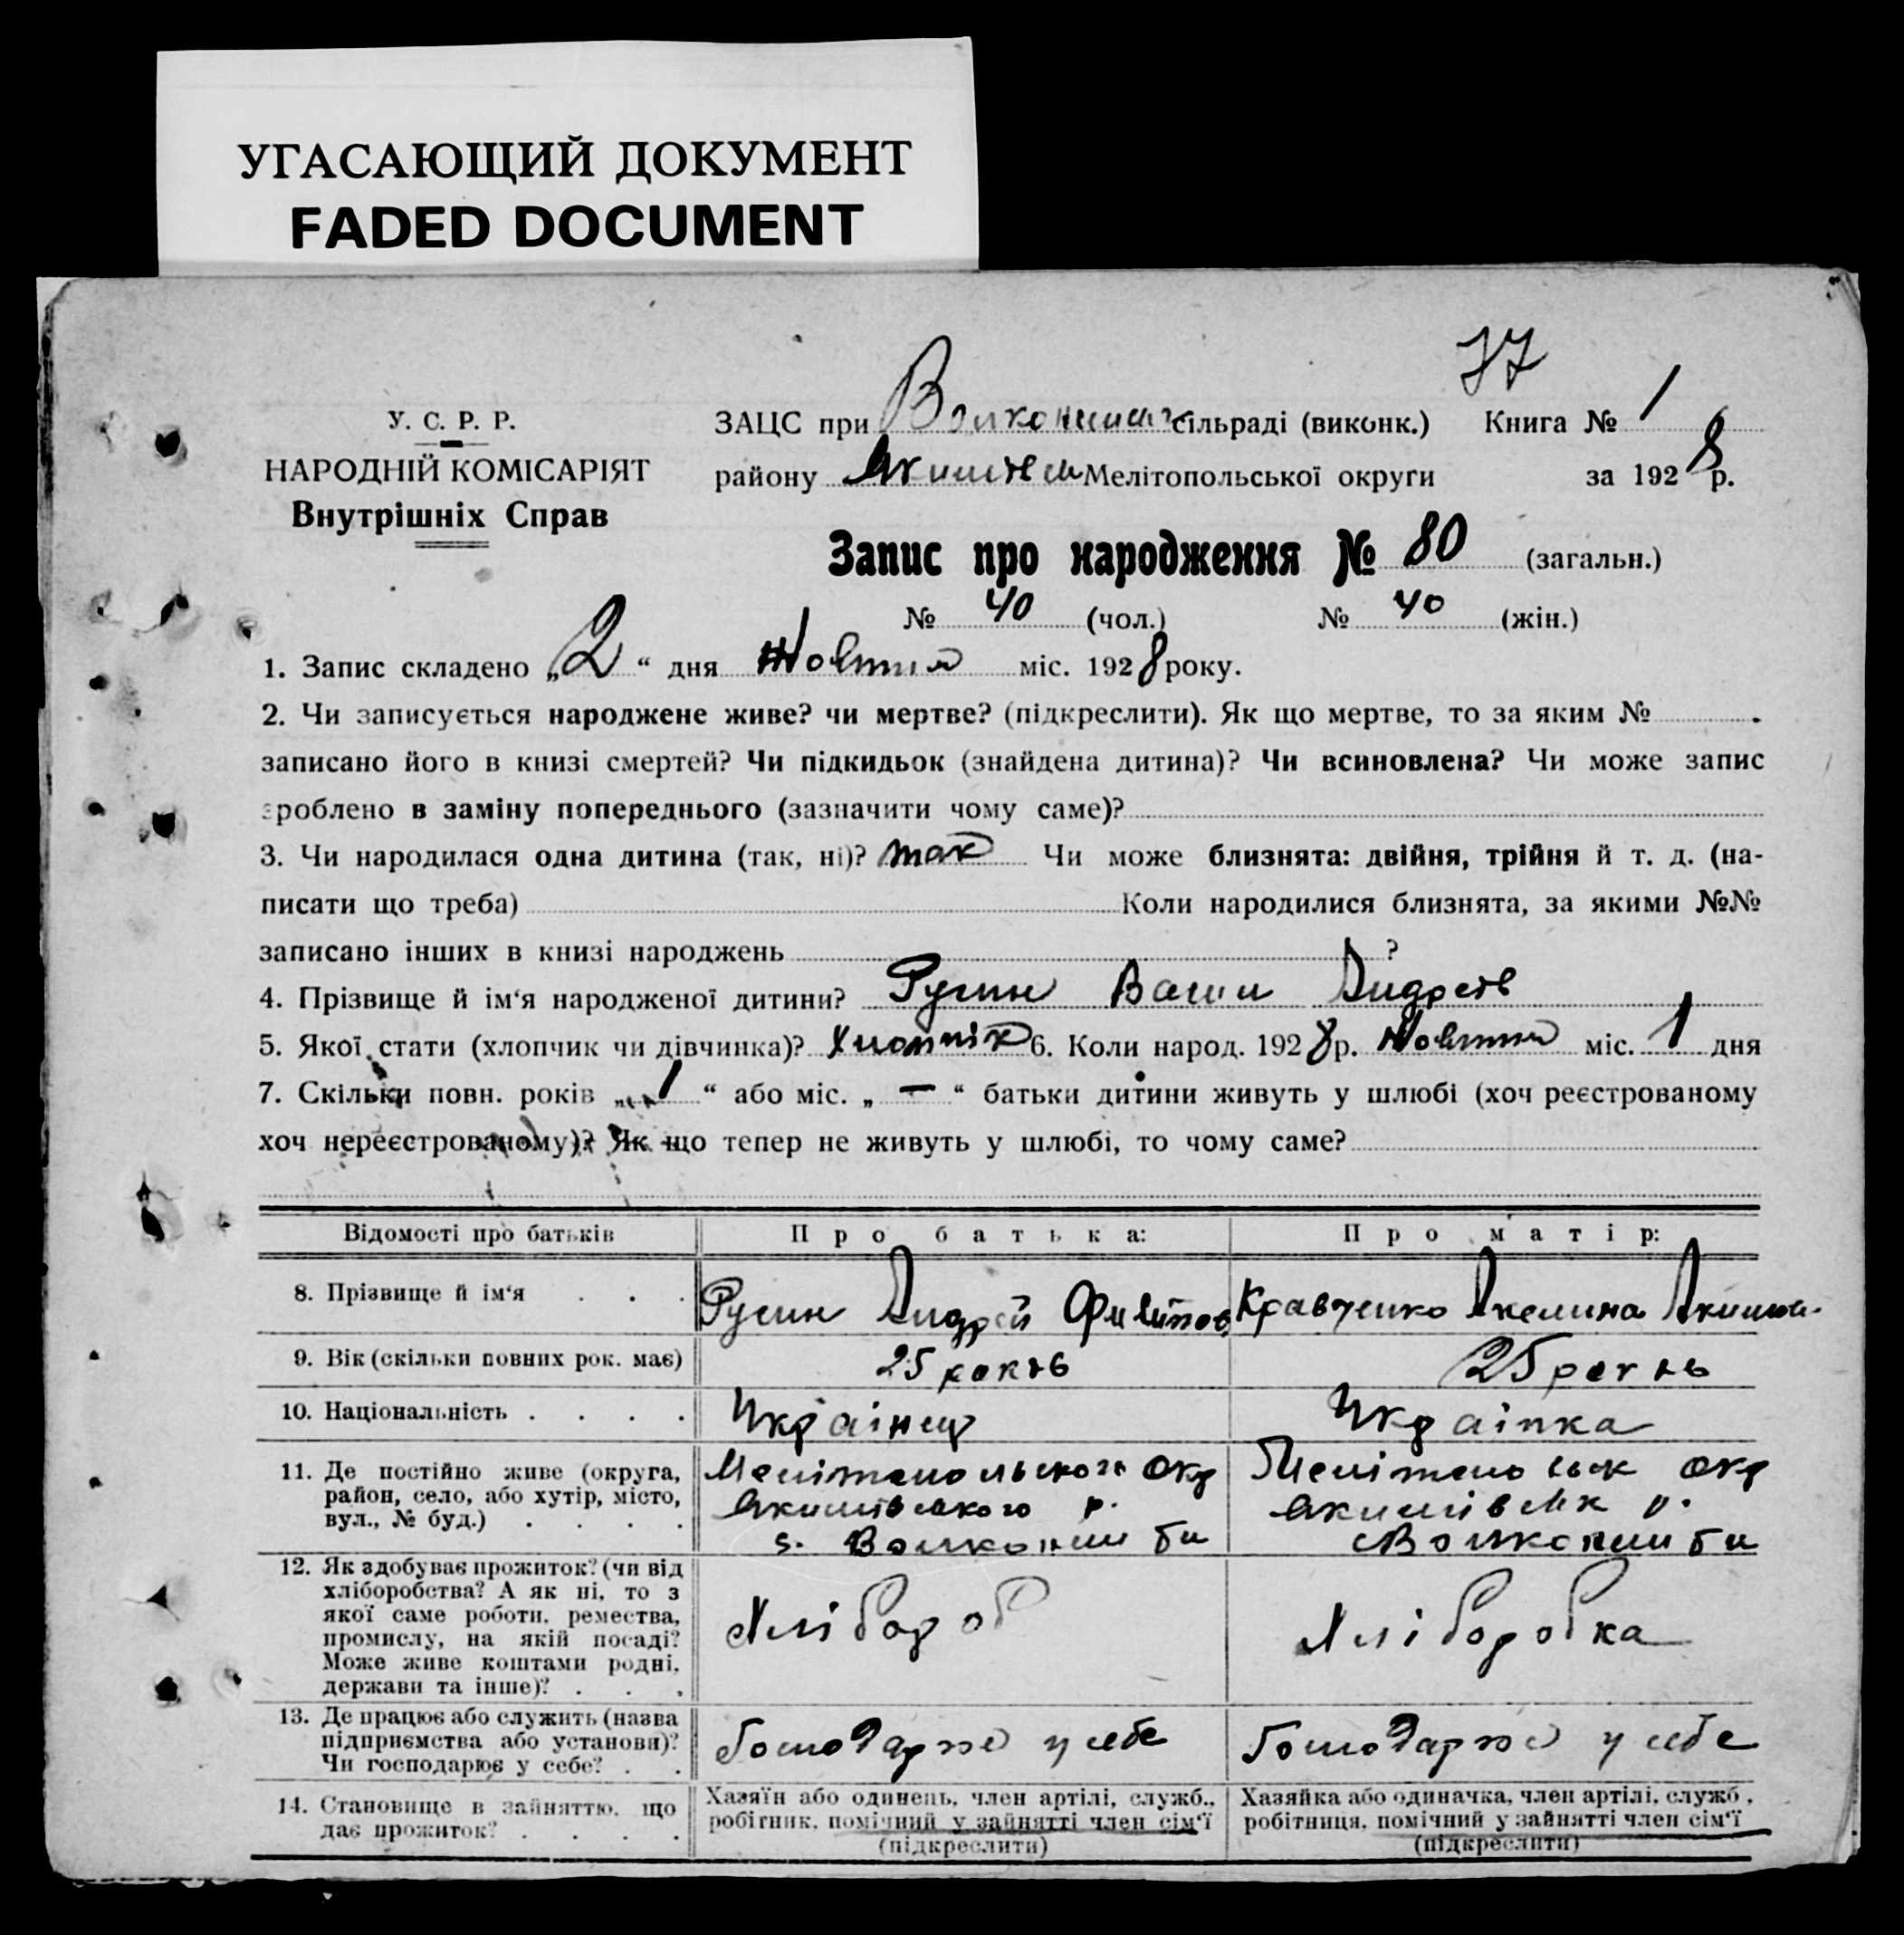 УГАСАЮЩИЙ ДОКУМЕНТ
FADED DOCUMENT
77
У. С. Р. Р.
НАРОДНІЙ КОМІСАРІЯТ
Внутрішніх Справ
ЗАЦС при сільраді (виконк.) Книга № 1
району Мелітопольської округи за 1928 р.
Запис про народження № 80 (загальн.)
№ 40 (чол.) № 40 (жін.)
1. Запис складено „2“ дня Жовтня міс. 1928 року.
2. Чи записується народжене живе? чи мертве? (підкреслити). Як що мертве, то за яким № .
записано його в книзі смертей? Чи підкидьок (знайдена дитина)? Чи всиновлена? Чи може запис
зроблено в заміну попереднього (зазначити чому саме)?
3. Чи народилася одна дитина (так, ні)? так Чи може близнята: двійня, трійня й т. д. (на-
писати що треба) Коли народилися близнята, за якими №№
записано інших в книзі народжень ?
4. Прізвище й ім‘я народженої дитини? Русин Васил Андреїв
5. Якої стати (хлопчик чи дівчинка)? Хлопчік 6. Коли народ. 1928 р. Жовтня міс. 1 дня
7. Скільки повн. років „1“ або міс. „—“ батьки дитини живуть у шлюбі (хоч реєстрованому
хоч нереєстрованому)? Як що тепер не живуть у шлюбі, то чому саме?
Відомості про батьків Про батька: Про матір:
8. Прізвище й ім‘я . . . Русин Андрей Филіпов Кравченко Акелина
9. Вік (скільки повних рок. має) 25 років 25 років
10. Національність . . . . Українец Українка
11. Де постійно живе (округа, район, село, або хутір, місто, вул., № буд.) . . . .
Мелітопольского Окр
Якимівського р.
с. Волконешти
Мелітопольск Окр
Якимівськ р.
с Волконешти
12. Як здобуває прожиток? (чи від
хліборобства? А як ні, то з
якої саме роботи, ремества,
промислу, на якій посаді?
Може живе коштами родні,
держави та інше)? . . .
Хлібороб
Хліборобка
13. Де працює або служить (назва
підприємства або установи)?
Чи господарює у себе? . .
Господарює у себе
Господарює у себе
14. Становище в зайняттю, що
дає прожиток? . . . .
Хазяїн або одинець, член артілі, служб.,
робітник, помічний у зайнятті член сім‘ї
(підкреслити)
Хазяйка або одиначка, член артілі, служб.,
робітниця, помічний у зайнятті член сім‘ї
(підкреслити)